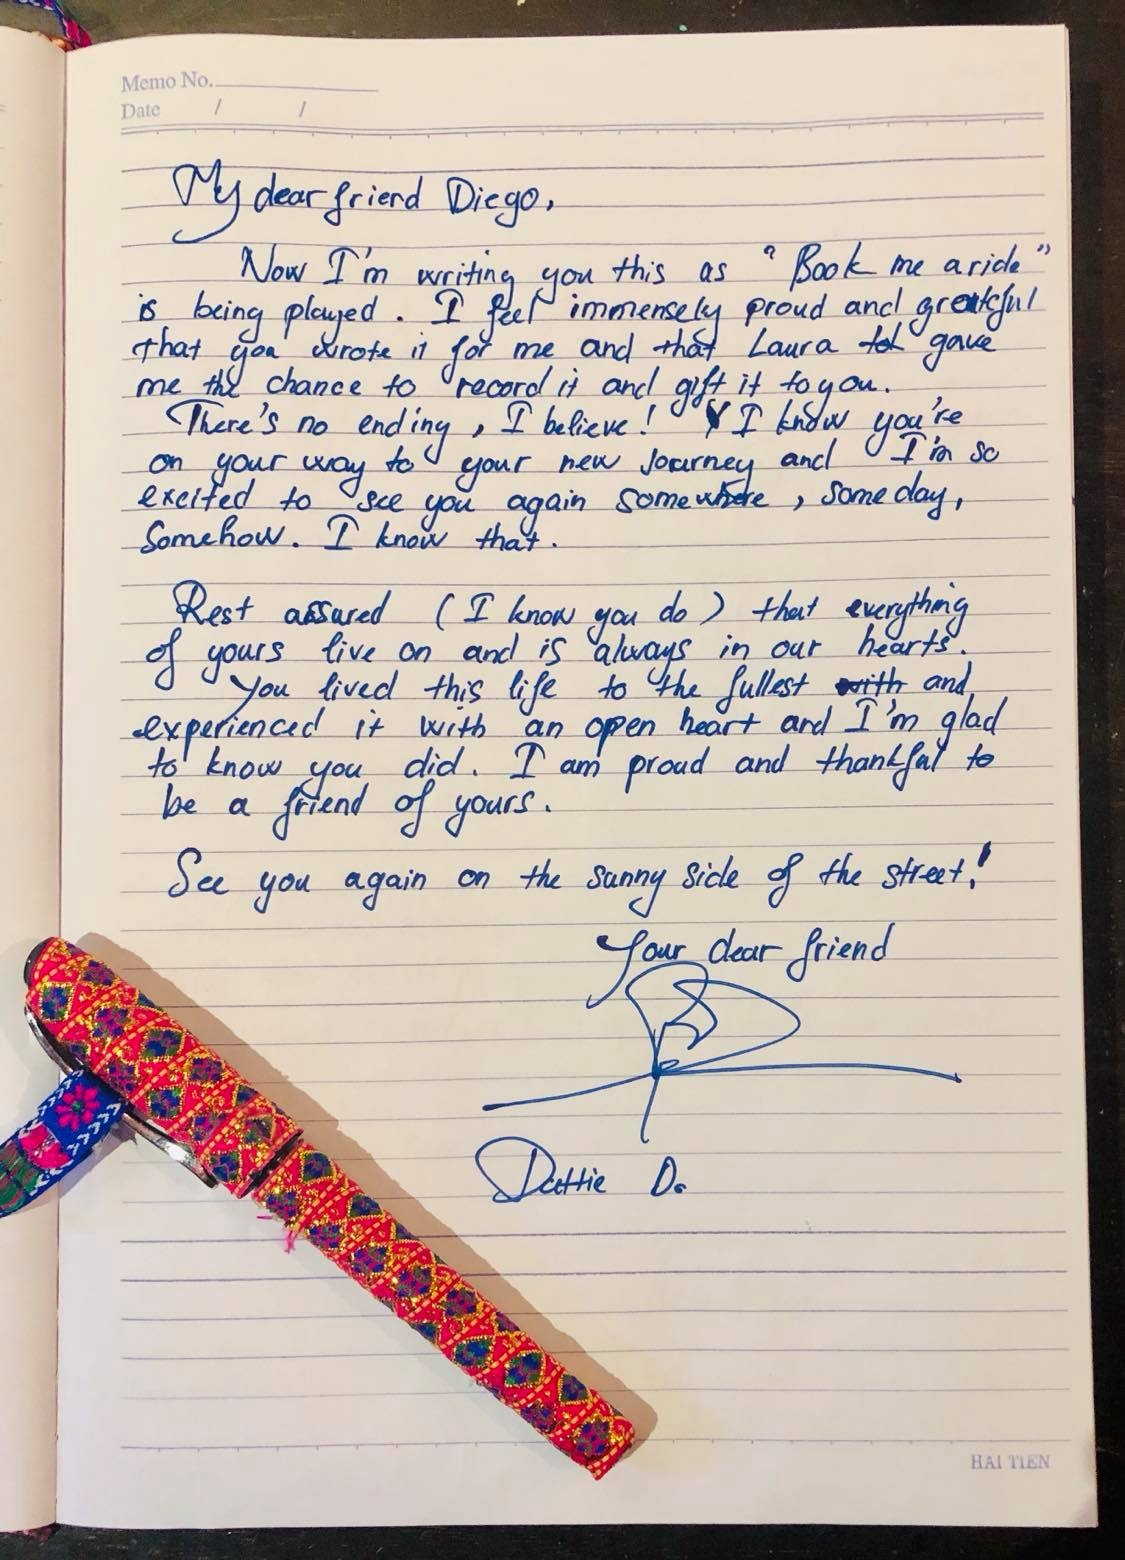 Memo No.
Date / /
My dear friend Diego,
Now I'm writing you this as "Book me a ride"
is being played. I feel immensely proud and grateful
that you wrote it for me and that Laura gave
me the chance to record it and gift it to you.
There's no ending, I believe! I know you're
on your way to your new journey and I'm so
excited to see you again somewhere, someday,
Somehow. I know that.
Rest assured (I know you do) that everything
of yours live on and is always in our hearts.
You lived this life to the fullest with and
experienced it with an open heart and I'm glad
to know you did. I am proud and thankful to
be a friend of yours.
See you again on the sunny side of the street!
Your dear friend
D.
HAI TIEN